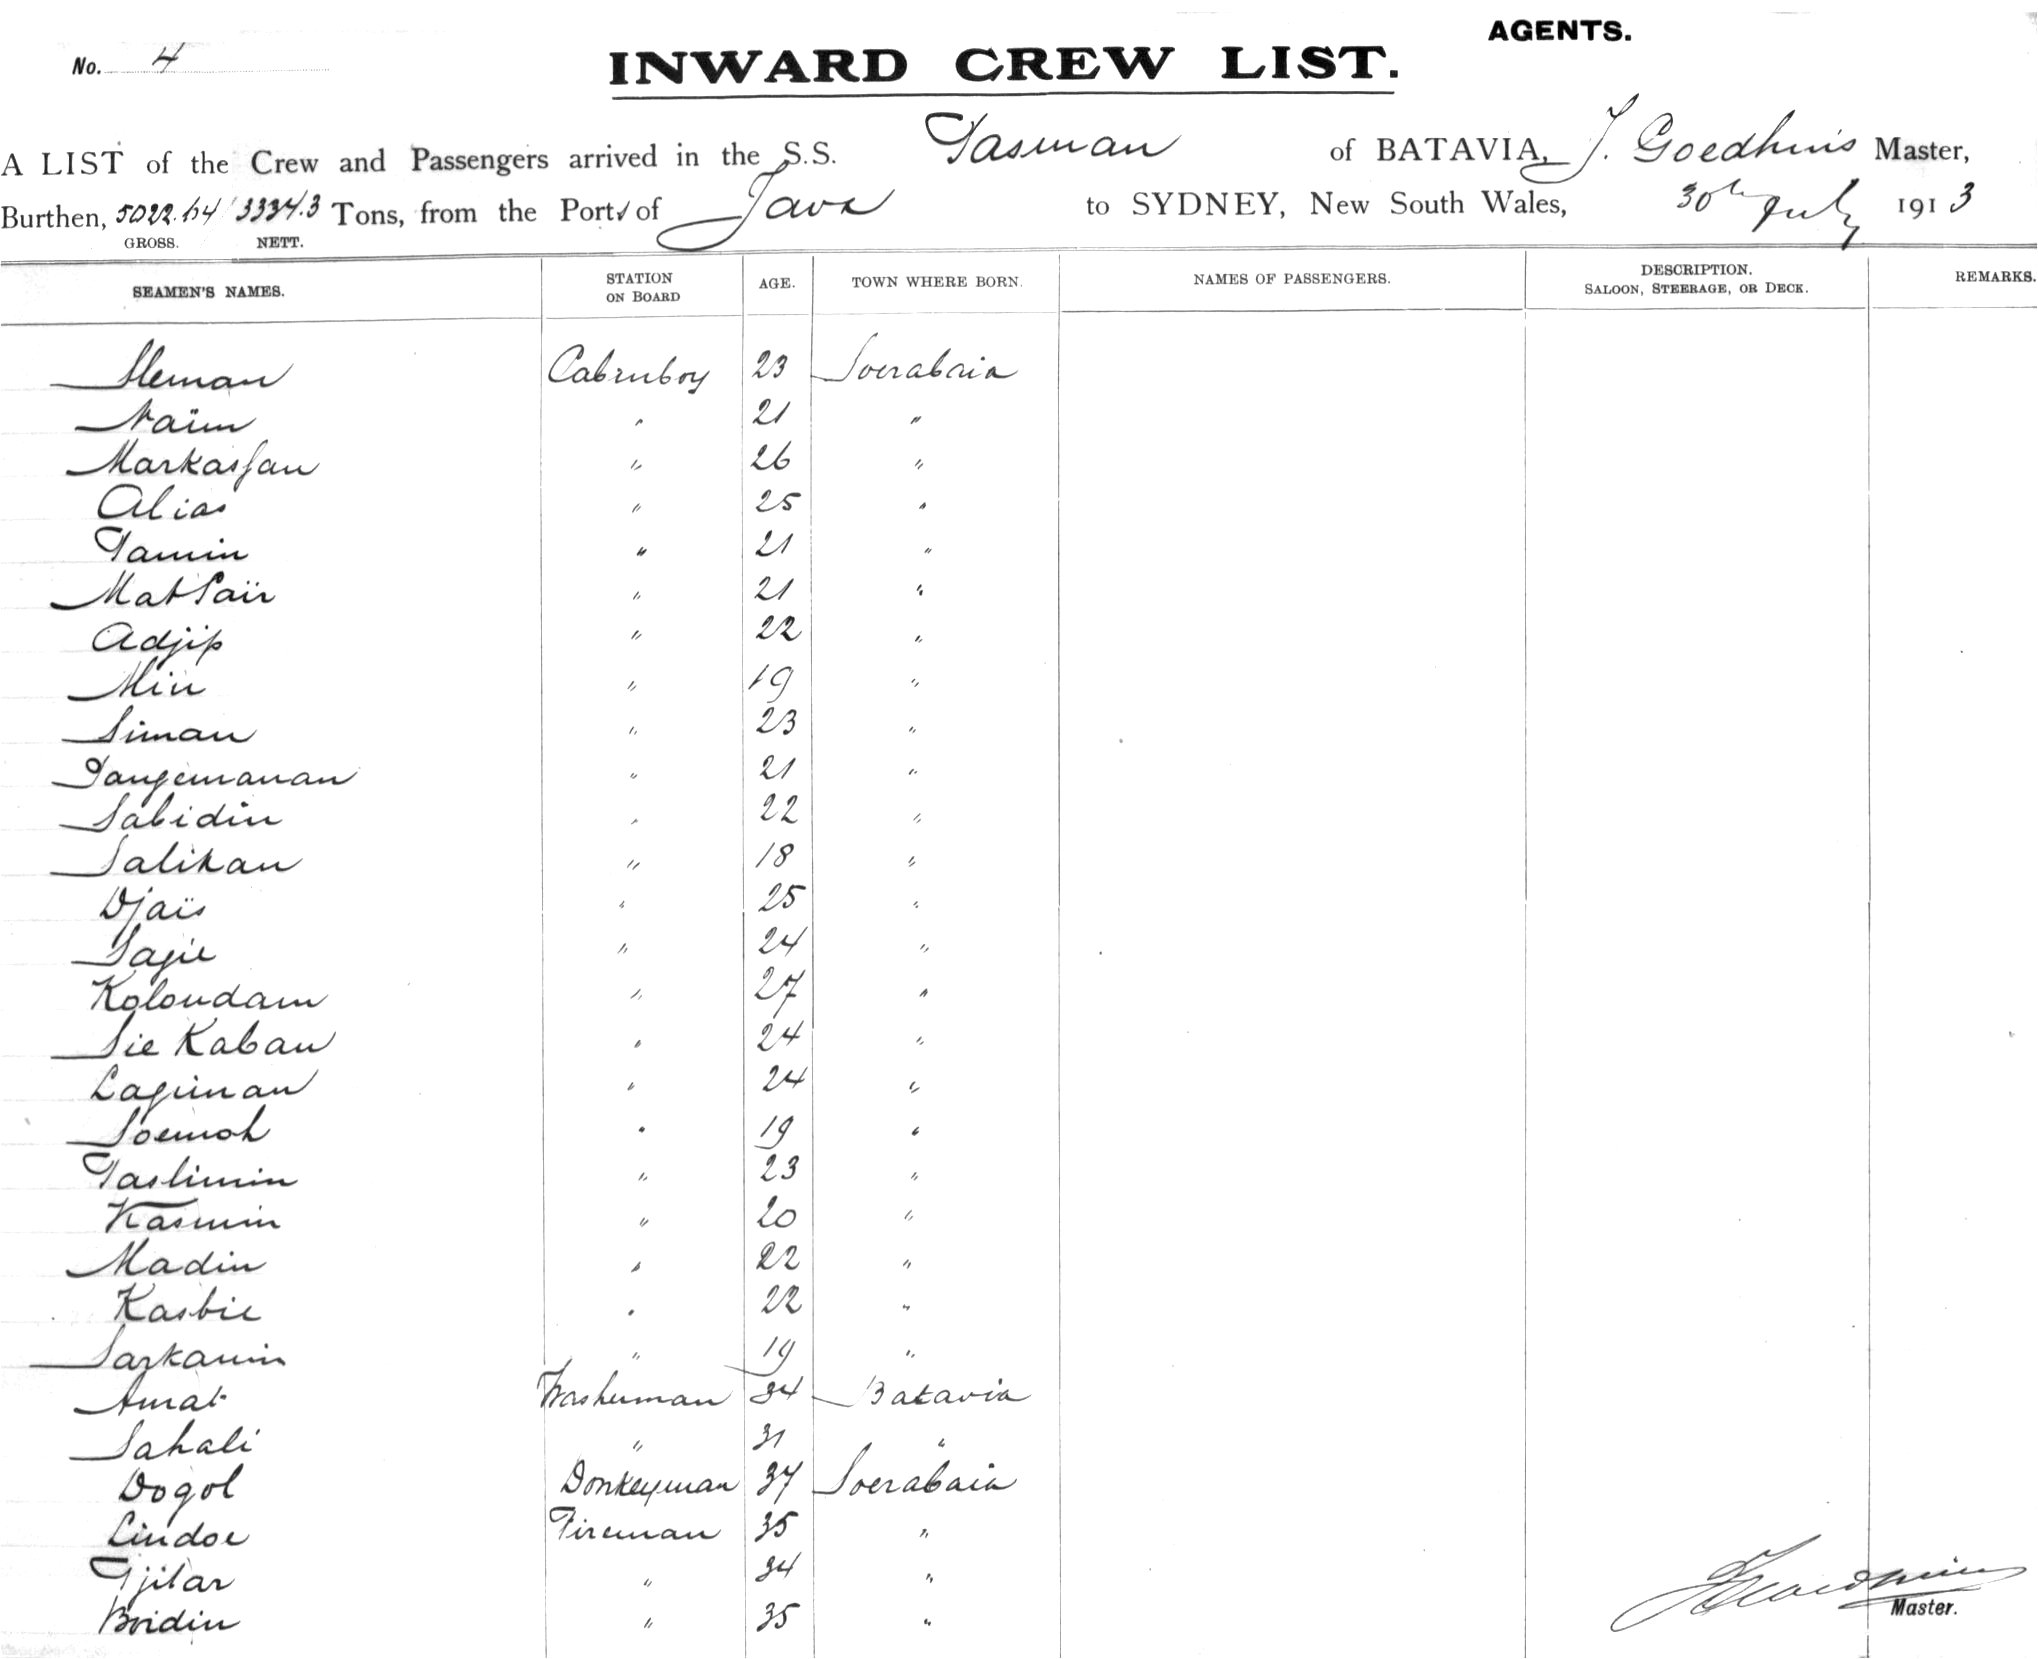 AGENTS.
No. 4
INWARD CREW LIST.
A LIST of the Crew and Passengers arrived in the S.S. Tasman of BATAVIA, J. Goedhuis Master,
Burthen, 5022.64 3334.3 Tons, from the Ports of Java to SYDNEY, New South Wales, 30th July 1913
GROSS. NETT.
SEAMEN'S NAMES. STATION ON BOARD AGE. TOWN WHERE BORN. NAMES OF PASSENGERS. DESCRIPTION. SALOON, STEERAGE, OR DECK. REMARKS.
Sleman Cabinboy 23 Soerabaia
Naïm " 21 "
Markassan " 26 "
Alias " 25 "
Tamin " 21 "
Mat Saïr " 21 "
Adjip " 22 "
Min " 19 "
Siman " 23 "
Tangemanan " 21 "
Sabidin " 22 "
Salikan " 18 "
Djaïs " 25 "
Sagie " 24 "
Koloudam " 27 "
Sie Kaban " 24 "
Lagiman " 24 "
Soemoh " 19 "
Taslimin " 23 "
Kasmin " 20 "
Madin " 22 "
Kasbie " 22 "
Sarkamin " 19 "
Amat Washerman 34 Batavia
Sahali " 31 "
Dogol Donkeyman 37 Soerabaia
Lindoe Fireman 35 "
Tjilar " 34 "
Boidin " 35 "
J Goedhuis
Master.